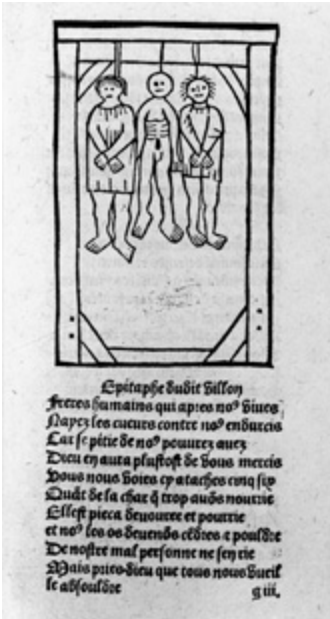 Epitaphe dudit Villon
Freres humains qui apres noꝰ viues
Nayez les cueurs contre noꝰ endurcis
Car se pitie de noꝰ pouurez auez
Dieu en aura plustost de vous mercis
Vous nous voies cy ataches cinq six
Quãt de la char q̃ trop auõs nourrie
Ellest pieca deuouree et pourrie
et noꝰ les os deuenõs cẽdres a pouldre
De nostre mal personne ne sen rie
Mais priez dieu que tous nous vueil
le absouldre
g iii.